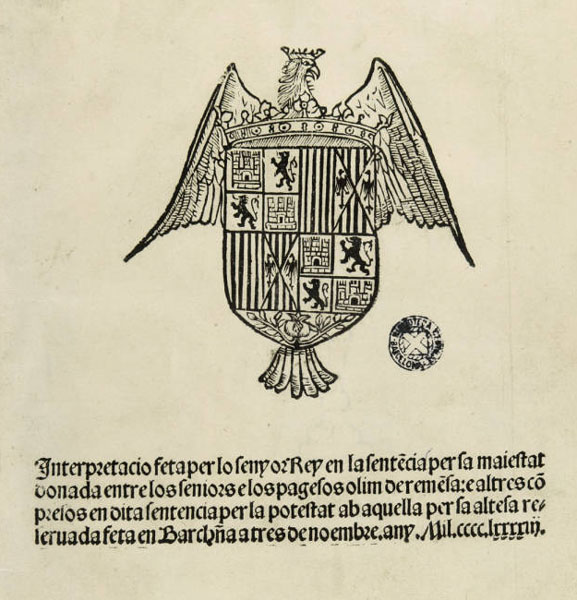 Interpretacio feta per lo senyor Rey en la sentẽcia per sa maiestat
donada entre los seniors e los pagesos olim de remẽsa: e altres cõ
presos en dita sentencia per la potestat ab aquella per sa altesa re⸗
seruada feta en Barchña a tres de noembre. any. Mil.cccc.lxxxxiij.